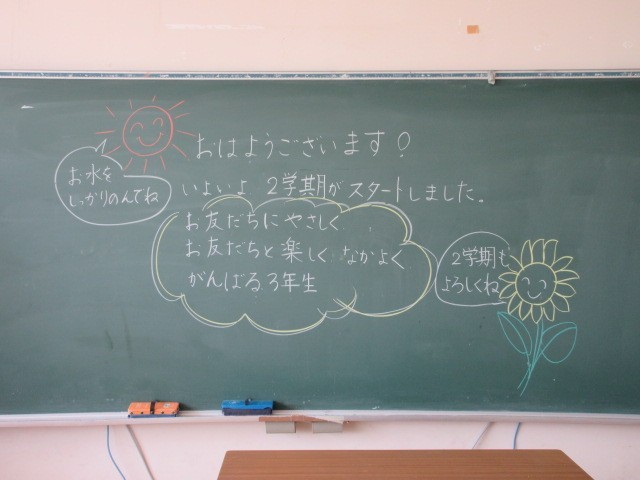 おはようございます!
お水を
しっかりのんでね
いよいよ 2学期がスタートしました。
お友だちにやさしく
お友だちと楽しくなかよく
がんばる3年生
2学期も
よろしくね